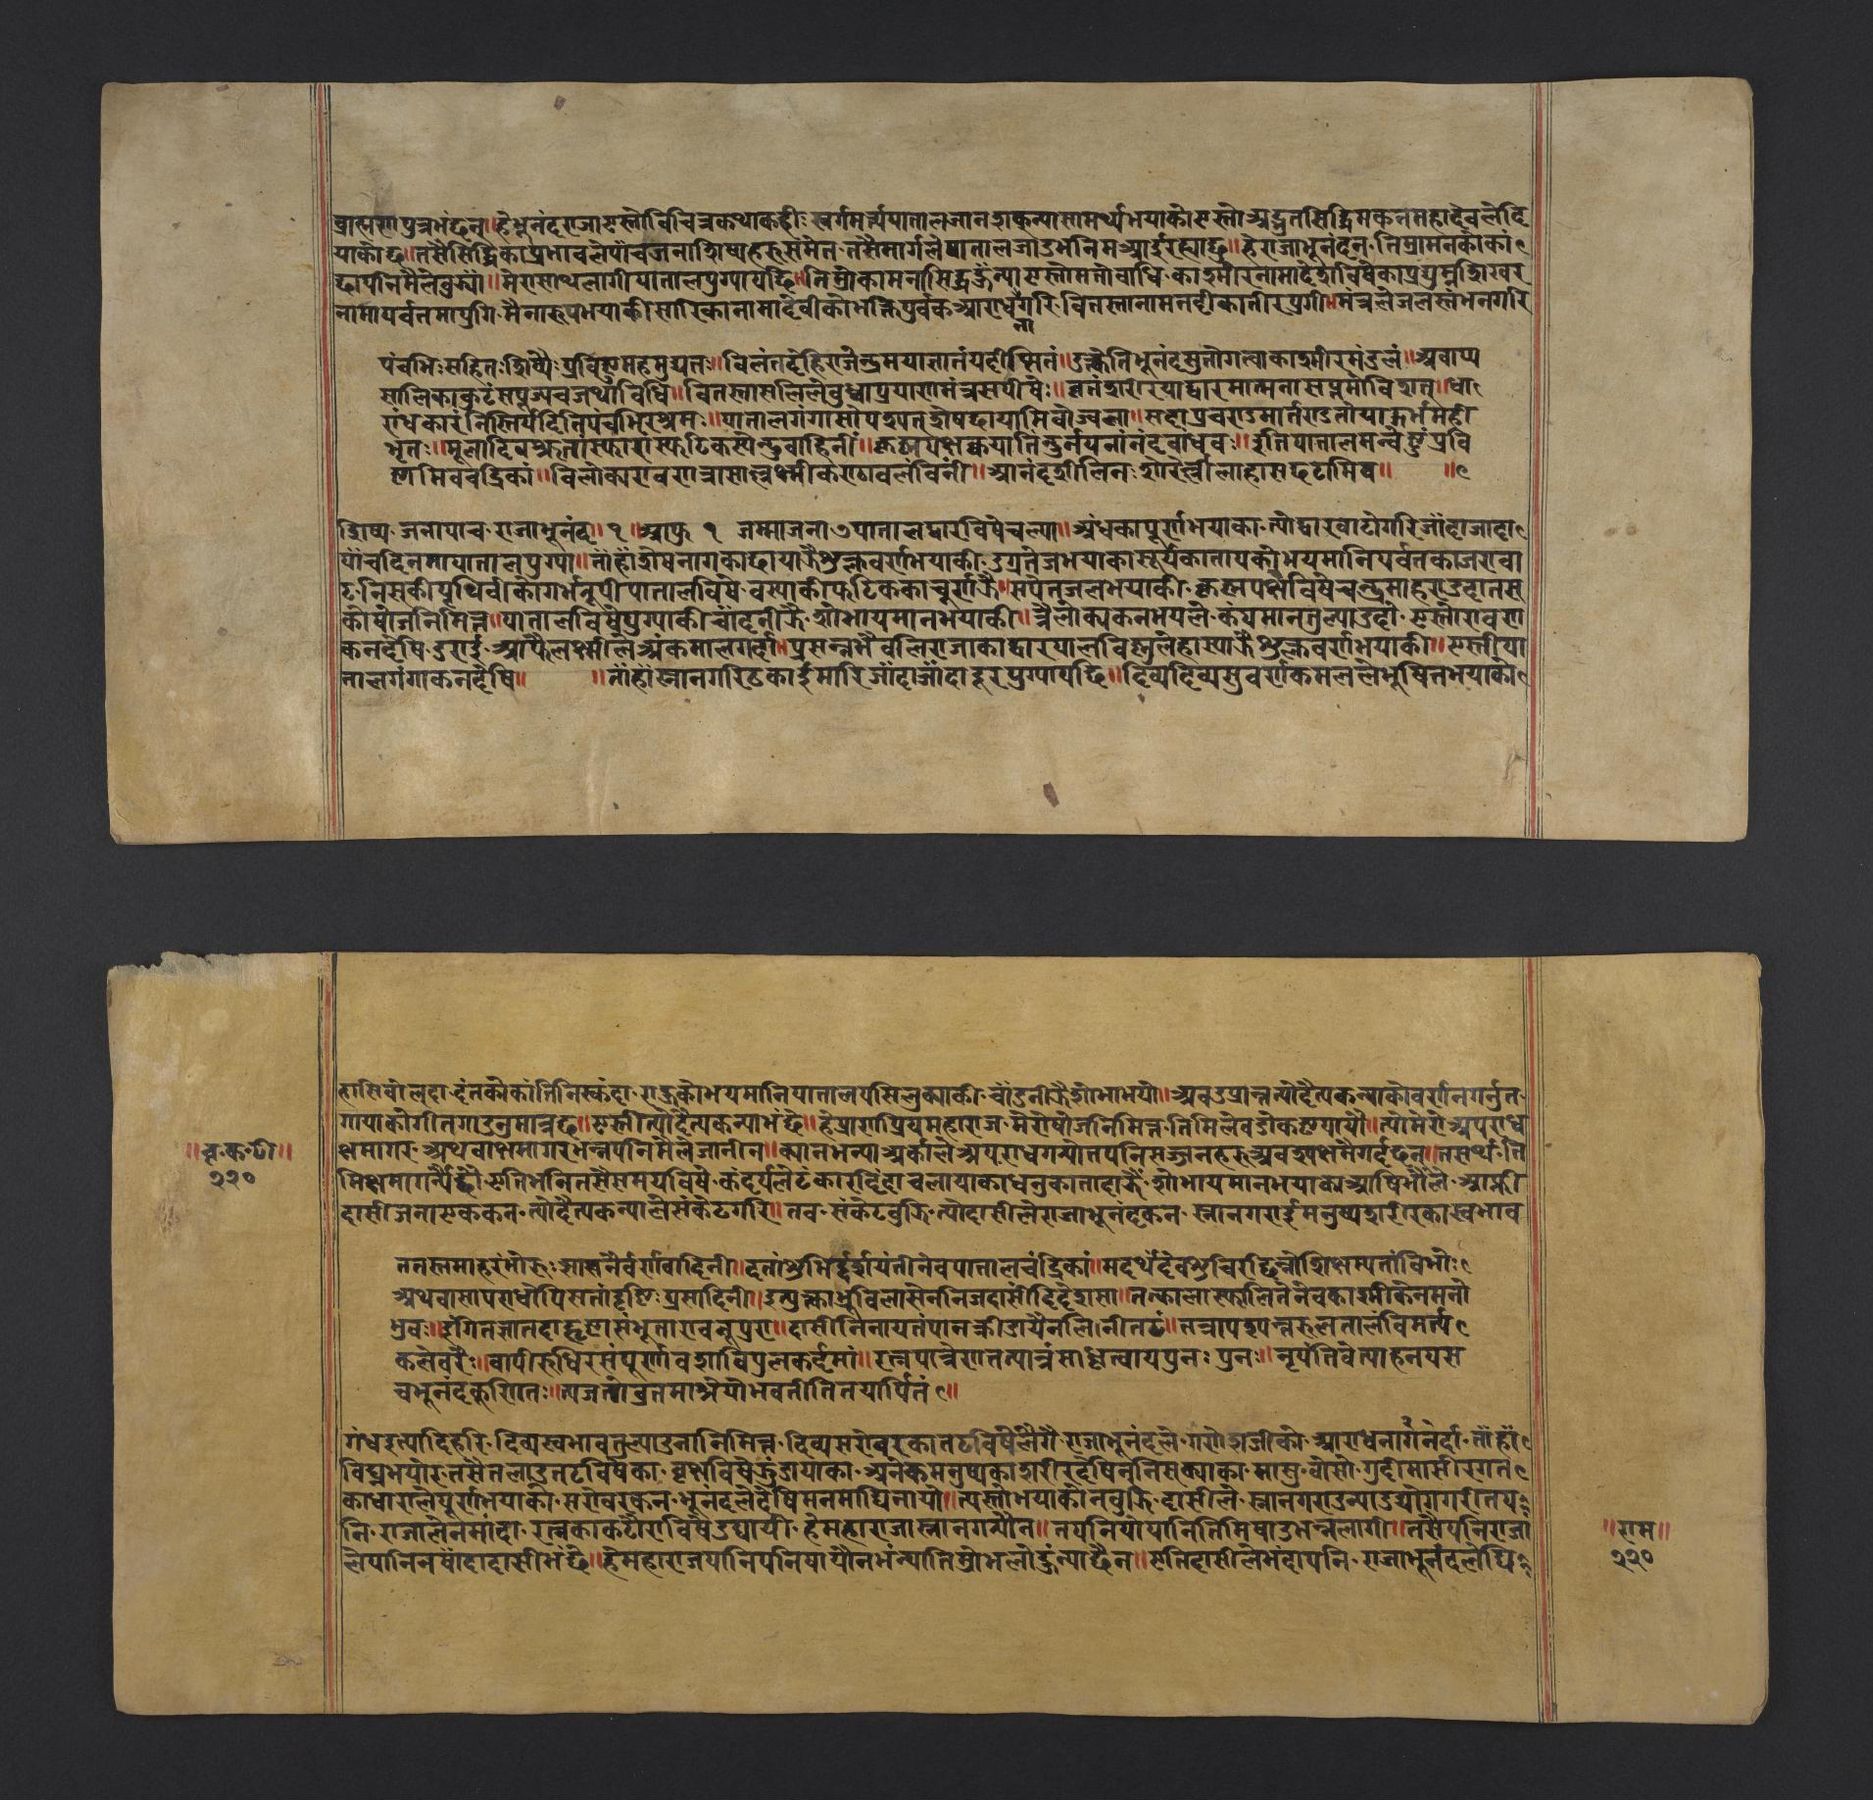 ब्राह्मणपुत्रभंछन्॥हेभूनंदराजाऐस्तोविचित्रकथाकही॰स्वर्गमर्त्यपातालजानशकन्यासामर्थ्यभयाकोऐस्तोअद्भुतसिद्धिमकनमहादेवलेदि
याकोछ॥तसैसिद्धिकाप्रभावलेपाँचजनाशिष्यहरुसंमेत॰तसैमार्गलेपातालजाउभनिमआईरह्याछु॥हेराजाभूनंदन॰तिम्रामनकोकां
छापनिमैलेबुझ्याँ॥मेरासाथलागीपातालपुग्यापछि॥तिम्रोकामनासिद्धहुँन्याऐस्तोमतोबाँधि॰काश्मीरनामादेशविषेकाप्रद्युम्नशिखर
नामापर्वतमापुगि॰मैनारुपभयाकीसारिकानामादेवीकोभक्तिपुर्वकआराधनागरि॰वितस्तानामनदीकातीरपुगी॥मंत्रलेजलस्तंभनगरि
पंचभिःसहितःशिष्यैःप्रविष्टुमहमुद्यतः॥विलंतदेहिराजेन्द्रमयासानंयदीप्सितं॥उक्त्वेतिभूनंदसुतोगत्वाकाश्मीरमंडलं॥अवाप्य
सालिकाकुटंसंपुज्यचजथाविधि॥वितस्तासलिलेबुध्वाप्रयाणमंत्रसर्पाषैः॥व्रतंशरीरयाद्वारमात्मनासप्तमोविशत्॥धा
रांधकारंनिस्तिर्यदितिपंचभिरश्रमः॥पातालगंगासोपश्यतशेषछायामिवोज्वलां॥सहाप्रचराडमार्तराडतोयाङ्गर्भमही
भृतः॥मूलादिवश्रुतांस्फारांस्फटिकस्येन्दुवाहिनीं॥कृष्णपक्षक्षयातिन्दुर्नयनांनंदबांधवः॥इतिपातालमन्वेष्टुंप्रवि
ष्टामिवचंद्रिकां॥विलोक्यरावराचासांलक्ष्मीकराठावलंबिनी॥आनंदशीलिनःशौरेर्लीलाहासछटामिव॥ ॥
शिष्य॰जनापाच॰राजाभूनंद॥१॥आफु १ जम्माजना७पातालद्वारविषेचल्या॥अंधकापूर्णभयाका॰त्योद्वारबाटोगरिजाँदाजाँदा
पाँचदिनमापातालपुग्या॥ताँहाँशेषनागकाछायाझैशुक्लवर्णभयाकी॰उग्रतेजभयाकासूर्यकातापकोभयमानिपर्वतकाजराबा
ट॰निसकीपृथिवीकोगर्भनूपीपातालविषे॰वस्याकीफटिककाचुर्णझै॥सपेतजलभयाकी॰कृष्णपक्षविषेचन्द्रमाहराउदातस
कोषोजनिमित्त॥पातालविषेपुग्याकीचांदनीझै॰शोभायमानभयाकी॥त्रैलोक्यकनभयले॰कंपमानतुल्याउदो॰ऐस्तोरावरा
कनदेषि॰डराई॰आफैलक्ष्मीलेअंकमालगर्दा॥प्रसन्नभैबलिराजाकाद्वारपालविष्णुलेहास्याझैशुक्लवर्णभयाकी॥ऐस्तीपा
तालगंगाकनदेषि॥ ॥ताँहाँस्नानगरिटकाईमारिजाँदाजाँदादूरपुग्यापछि॥दिव्यदिव्यसुवर्णकमललेभुषितभयाको
॥वृ॰क॰पी॥
२२०
हासिबोलदा॰दंतकोकांतिनिस्कंदा॰राहुकोभयमानिपातालपसिलुक्याकी॰चाँडनीझैशोभाभयो॥अबउप्रान्नत्योदैत्यकन्याकोवर्णनगर्नुत
गायाकोगीतगाउनुमात्रछ॥ऐस्तीत्योदैत्यकन्याभंछे॥हेप्राणप्रियमहाराज॰मेरोषोजनिमित्त॰तिमिलेबडोकष्टपायौ॥त्योमेरोअपराध
क्षमागर॰अथवाक्षमागरभन्नपनिमैलेजानीन॥क्यानभन्याअर्कालेअपराधगर्‍योतपनिसज्जनहरुअवश्यक्षमैगर्दछन्॥तसर्थ॰ति
मिक्षमागर्न्यैछौ॰एतिभनितसैसमयविषे॰कंदर्पलेटंकारदिंदाचलायाकाधनुकातादाझैं॰शोभायमानभयाकाआषिभौंले॰आफ्नी
दासीजनाएककन॰त्योदैत्यकन्यालेसंकेटगरि॥तब॰संकेटबुझि॰त्योदासीलेराजाभूनंदकन॰स्नानगराईमनुष्यशरीरकास्वभाव
ततस्तमाहरंभोरुःसास्नैर्वर्णवादिनी॥दतांशुभिर्द्दर्शयंतीनेवपातालचंद्रिकां॥मदर्थेदेवशुचिरंछिन्नोशिक्षम्यतांविभोः
अथवासापराधोपिसतांदृष्टिःप्रसादिनी॥इत्युक्त्वाभ्रुविलासेननिजदासींदिदेशसा॥तत्कालास्फालितेनेवकार्मीकेनमनो
भुवः॥इंगितज्ञानदाहृष्टासंभूतारावनूपुरा॥दासीनिनायतंपानक्रीडायैनलिनीतटं॥तत्रापश्यन्नरुलतालंविमर्त्य
कलेवरैः॥वापीरुधिरसंपूर्णवशाविपुलकर्दमां॥रत्नपात्रेरातत्पात्रंसाध्वत्वायपुनःपुनः॥नृपेतिवेत्याहनयस
चभूनंदकूरिातः॥त्यजतोव्रतमाश्रेयोभवतीतितयार्पितं॥
गंधइत्यादिहरि॰दिव्यस्वभावतुल्याउनानिमित्त॰दिव्यसरोवरकातटविषेलैगै॰राजाभूनंदले॰गणेशजीको॰आराधनागर्नेर्दा॰ताँहाँ
विघ्नभयोर॰तसैतलाउतटविषेका॰वृक्षविषेझुंडायाका॰अनेकमनुष्यकाशरीरदेषिनैनिसक्याका॰मासु॰वोसो॰गुदीमासीरगत
काधारालेपूर्णभयाको॰सरोवरकन॰भूनंदलेदेषिमनमाघिनायो॥त्यस्तोभयाकोनबुझि॰दासीले॰स्नानगराउन्याउद्योगगरीतप
नि॰राजालेनमाँदा॰रत्नकाकटौराविषेउघायी॰हेमहाराजास्नानगर्‍यौन॥तपनियोपानितिमिषाउभन्नलागी॥तसैपनिराजा
लेपानिनषाँदादासीभंछे॥हेमहाराजपानिपनिषायौनभंन्यातिम्रोभलोहुंन्याछैन॥एतिदासीलेभंदापनि॰राजाभूनंदलेघि
॥राम॥
२२०